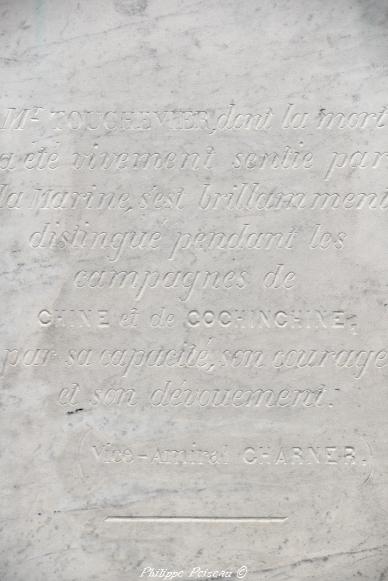 Mr TOUCHEMIER, dont la mort
a été vivement sentie par
la Marine, s'est brillamment
distingué pendant les
campagnes de
CHINE et de COCHINCHINE,
par sa capacité, son courage
et son dévouement.
(Vice-Amiral CHARNER.)
Philippe Poiseau ©